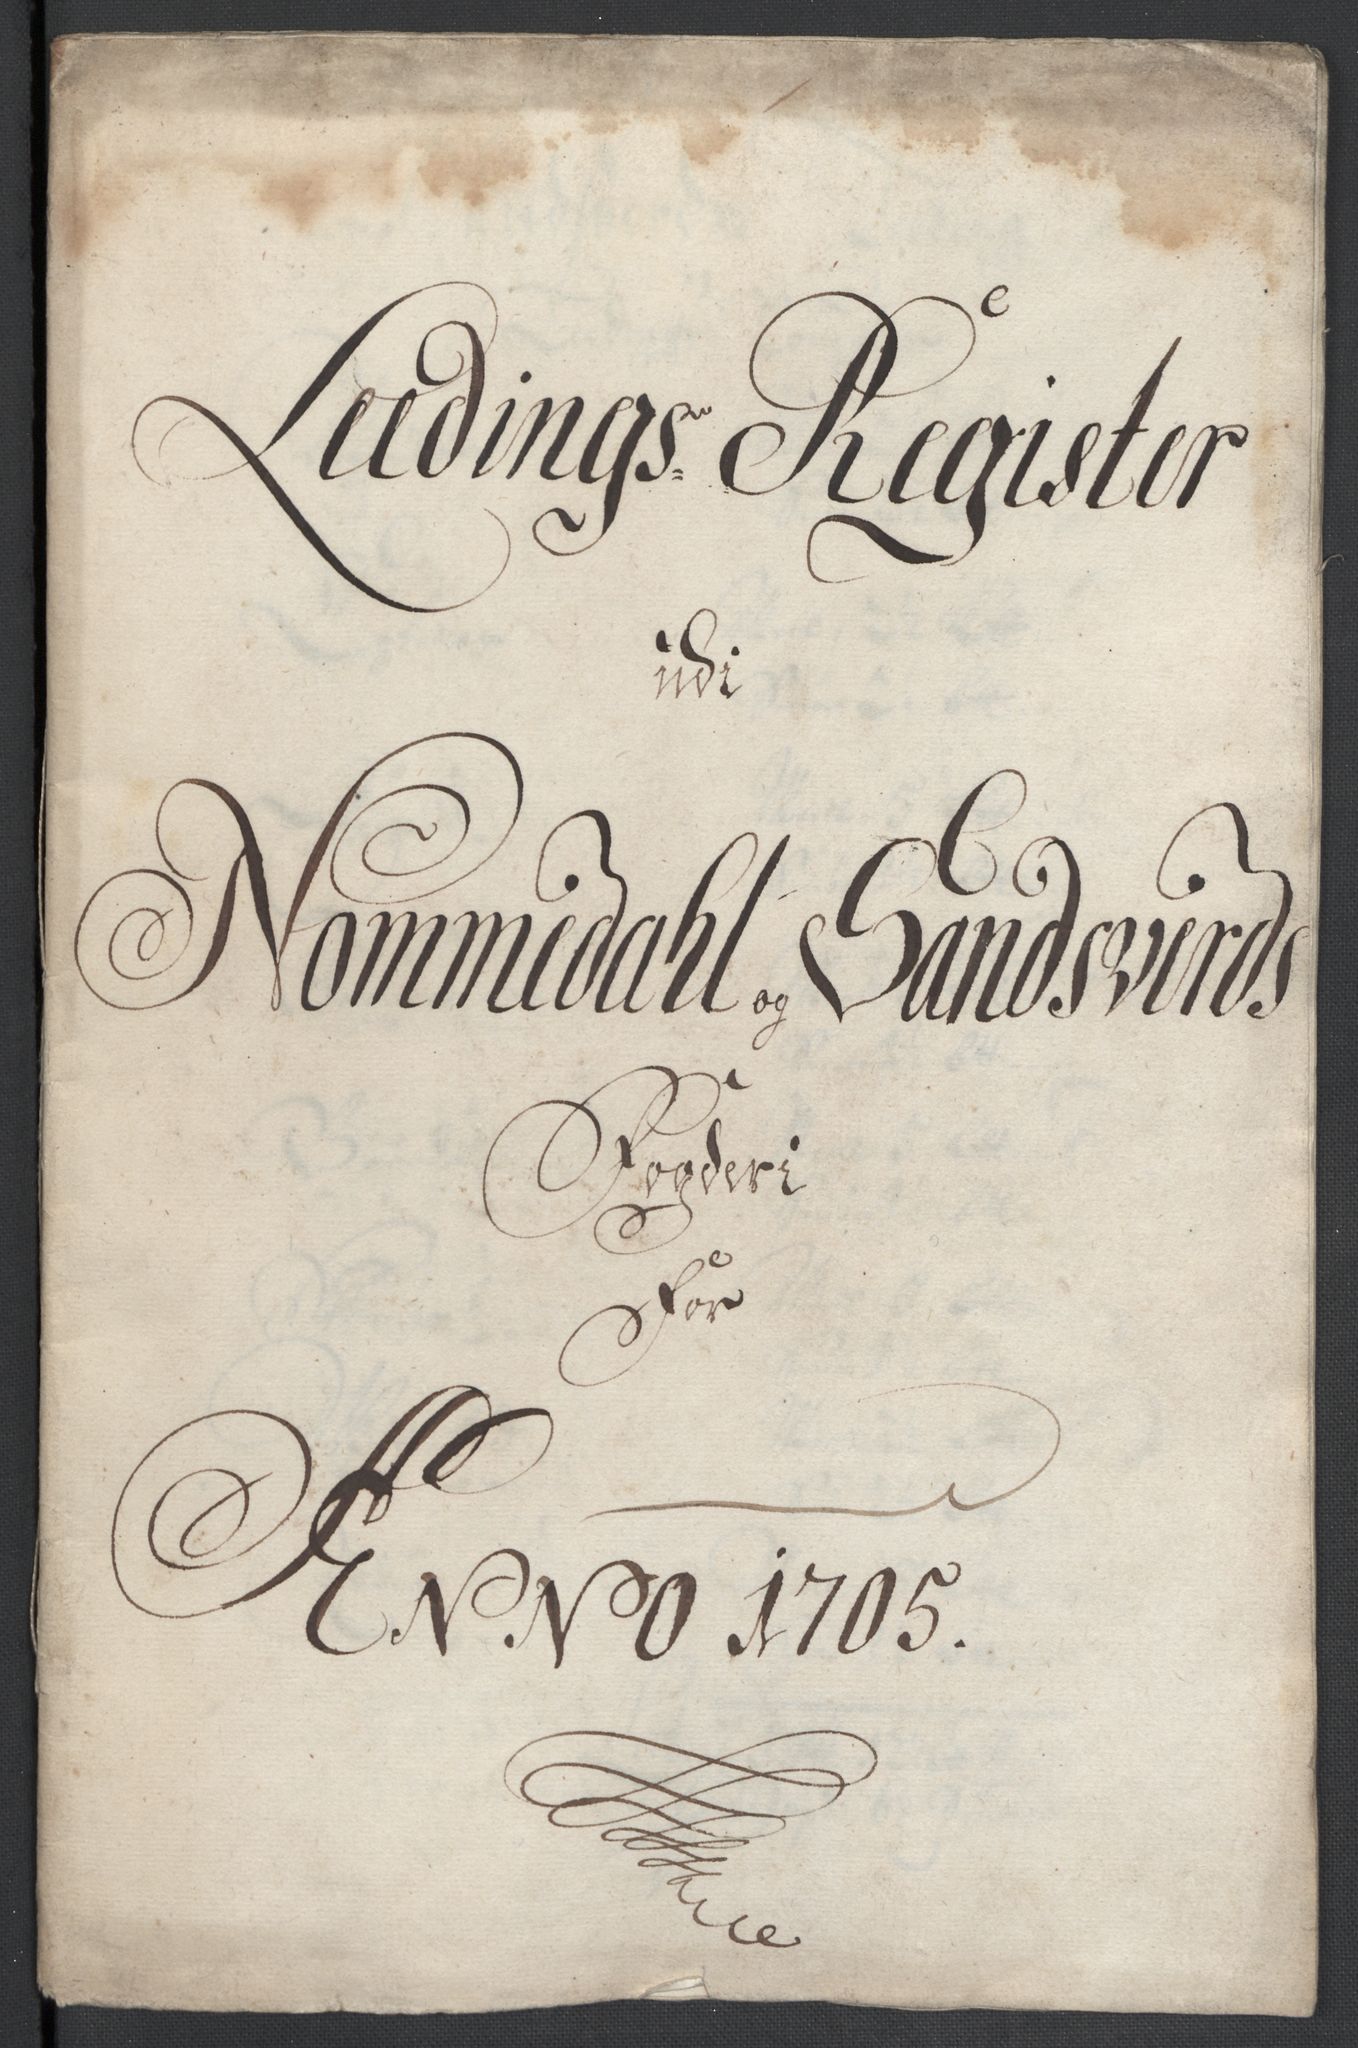 Leedings- Register
udi
Nommedahl og Sandsverds
Fogderi
For
ANNO 1705.